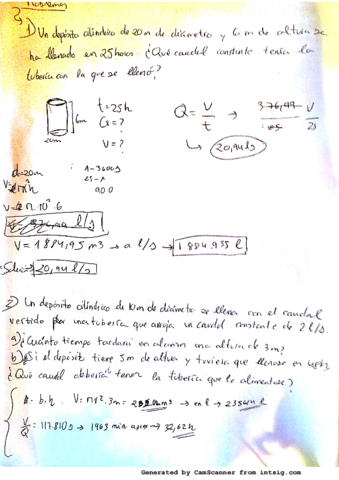 Problemas
1) Un depósito cilíndrico de 20m de diámetro y 6 m de altura se
ha llenado en 25 horas. ¿Qué caudal constante tenía la
tubería con la que se llenó?
6m
20m
t=25h
Q=?
V=?
Q = V/t → V
25
↳ 20,94 l/s
d=20m
1-3600s
25-x
V=πr²h
V=π·10²·6
V=1884,95 m3 → a l/s → 1884955 l
20,94 l/s
2) Un depósito cilíndrico de 10m de diámetro se llena con el caudal
vertido por una tubería que arroja un caudal constante de 2 l/s.
a) ¿Cuánto tiempo tardará en alcanzar una altura de 3m?
b) Si el depósito tiene 5m de altura y tuviera que llenarse en
¿Qué caudal debería tener la tubería que lo alimentase?
V=πr².3m= → en l →
V/Q = 117.810s → 1963 min → 32,62h
Generated by CamScanner from intsig.com